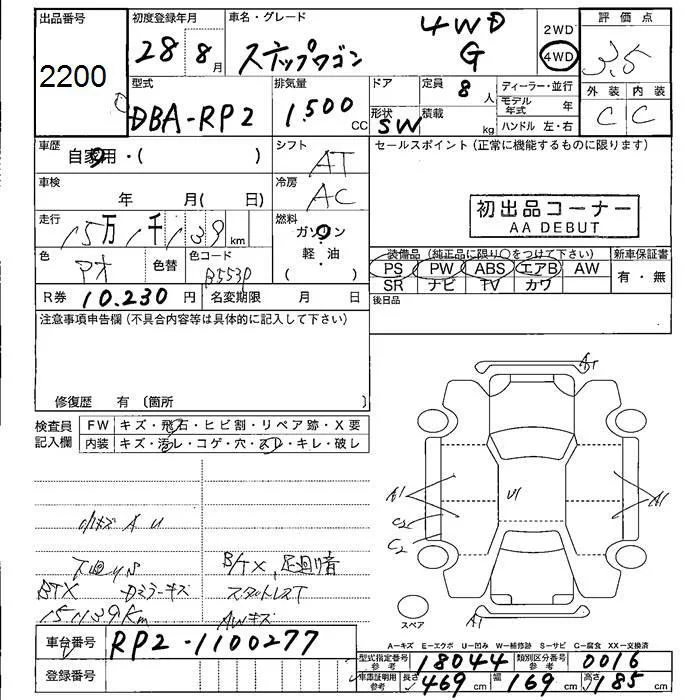 出品番号
2200
初度登録年月
28 8月
車名・グレード
ステップワゴン
4WD
G
2WD
4WD
評価点
3.5
外装 内装
C C
型式
DBA-RP2
排気量
1.500
CC
ドア
形状
SW
定員
8人
積載
kg
ディーラー・並行
モデル年式 年
ハンドル 左・右
車歴
自家用・( )
シフト
AT
セールスポイント(正常に機能するものに限ります)
車検
年 月( 日)
冷房
AC
初出品コーナー
AA DEBUT
走行
15万1千139km
燃料
ガソリン
軽・油
( )
色
色替
色コード
B553P
装備品(純正品に限り○をつけて下さい)
PS PW ABS エアB AW
SR ナビ TV カワ
新車保証書
有・無
後日品
R券 10.230円
名変期限 月 日
注意事項申告欄(不具合内容等は具体的に記入して下さい)
修復歴 有〔箇所 〕
検査員
記入欄
FW キズ・飛石・ヒビ割・リペア跡・X要
内装 キズ・汚レ・コゲ・穴・スレ・キレ・破レ
小キズ A U
下廻りS
B/TX 足廻り音
BTX Dミラーキズ
スタットレスT
151139Km
AWキズ
A1
A1
U1
A1
C2
C2
A1
スペア
A-キズ E-エクボ U-凹み W-補修跡 S-サビ C-腐食 XX-交換済
車台番号
RP2-1100277
登録番号
型式指定番号
参考
18044
類別区分番号
参考
0016
車庫証明用
参考
長さ 469cm
幅 169cm
高さ 185cm